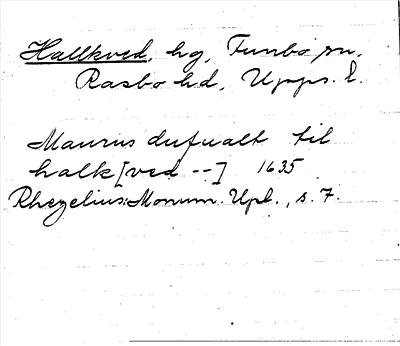 Hallkved, hg, Funbo sn,
Rasbo hd, Upps. l.
Maurus dufualt til
halk[ved --] 1635
Rhezelius: Monum. Upl., s. 7.